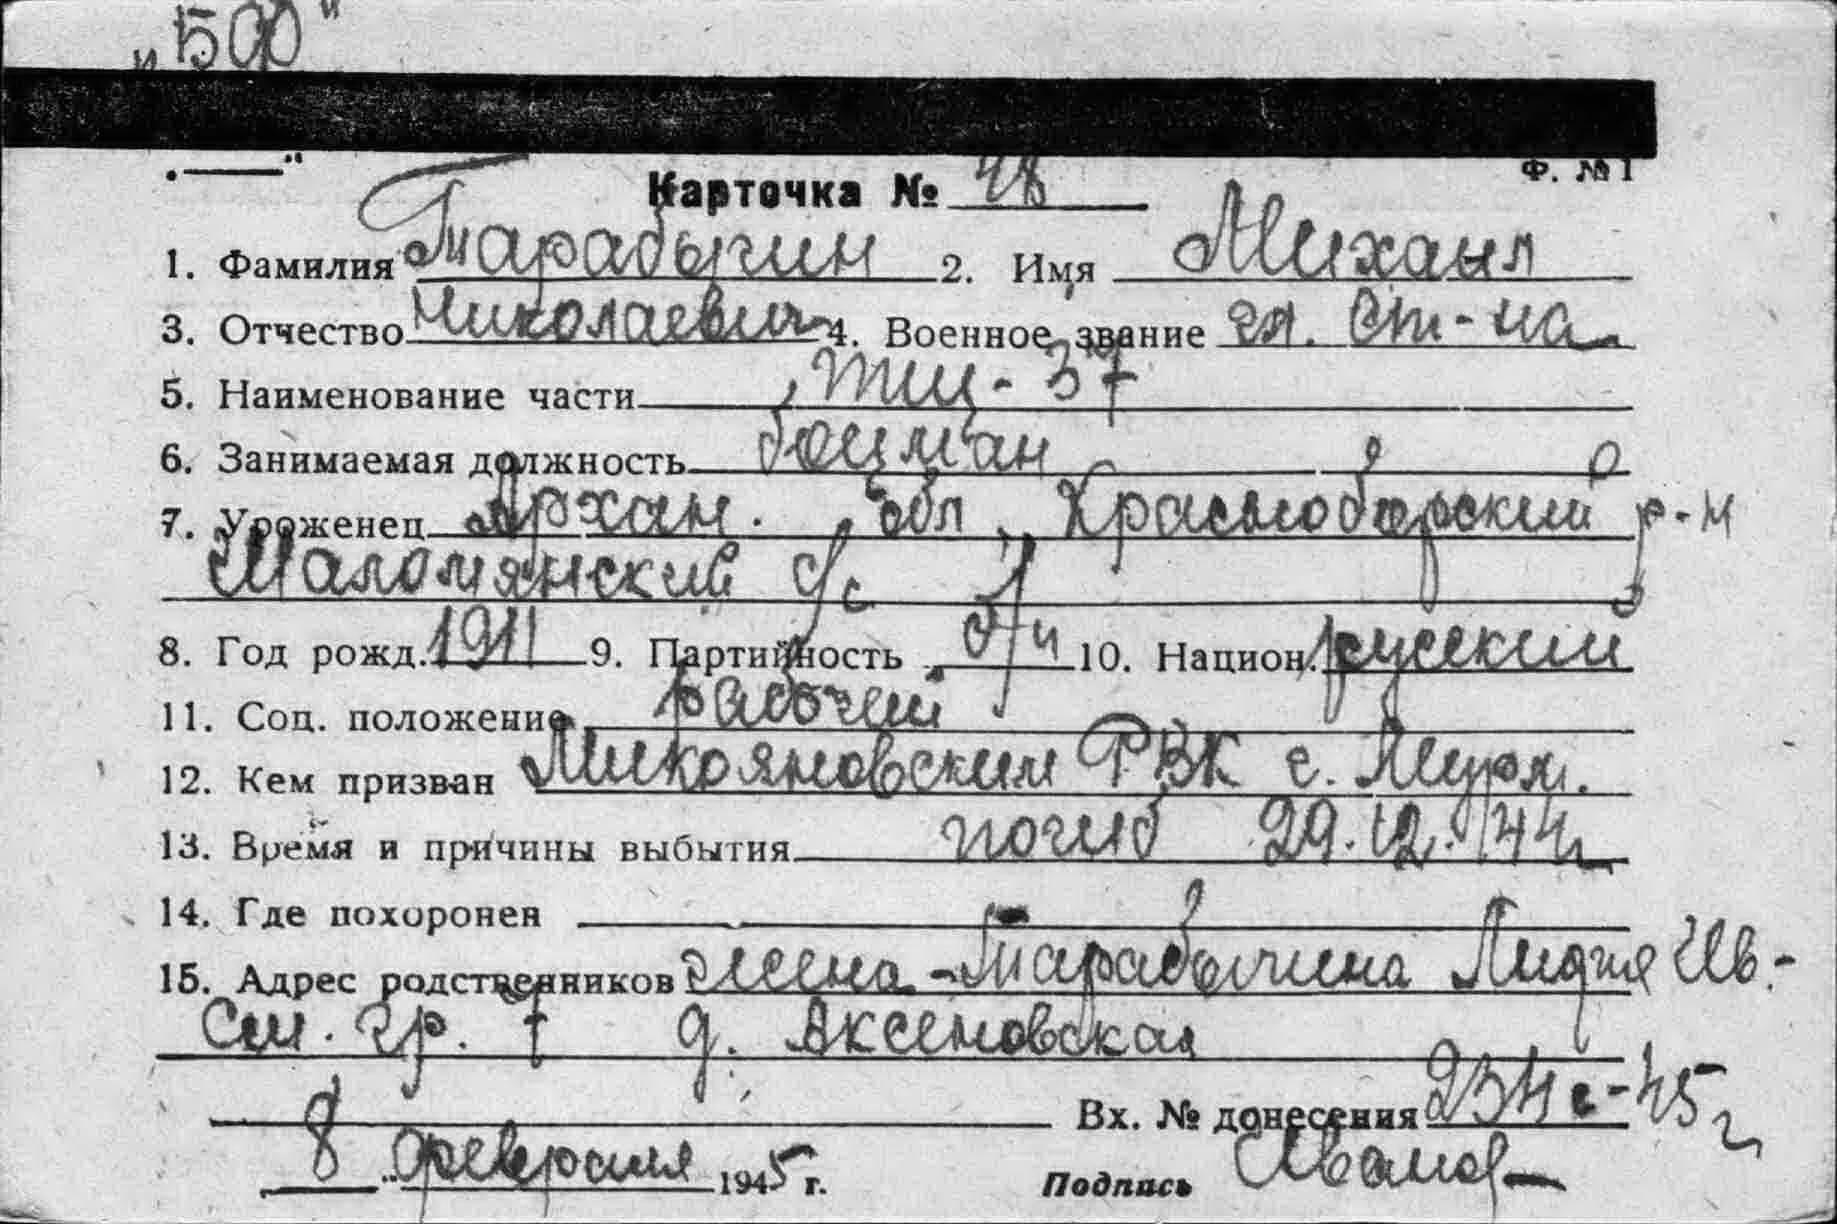 „БФ"
„——" Ф. № 1
Карточка № 48
1. Фамилия Тарабычин 2. Имя Михаил
3. Отчество Николаевич 4. Военное звание гл. ст-на
5. Наименование части ТЩ-37
6. Занимаемая должность боцман
7. Уроженец Архан. обл, Красноборский р-н
с/с
8. Год рожд. 1911 9. Партийность б/п 10. Национ. русский
11. Соц. положение рабочий
12. Кем призван Микояновским РВК г. Мурм.
13. Время и причины выбытия погиб 29.12.44г
14. Где похоронен —
15. Адрес родственников жена - Тарабычина Лидия Ив.-
См. гр. 7 д. Аксеновская
Вх. № донесения 234с-45г
8 февраля 1945 г. Подпись Иванов